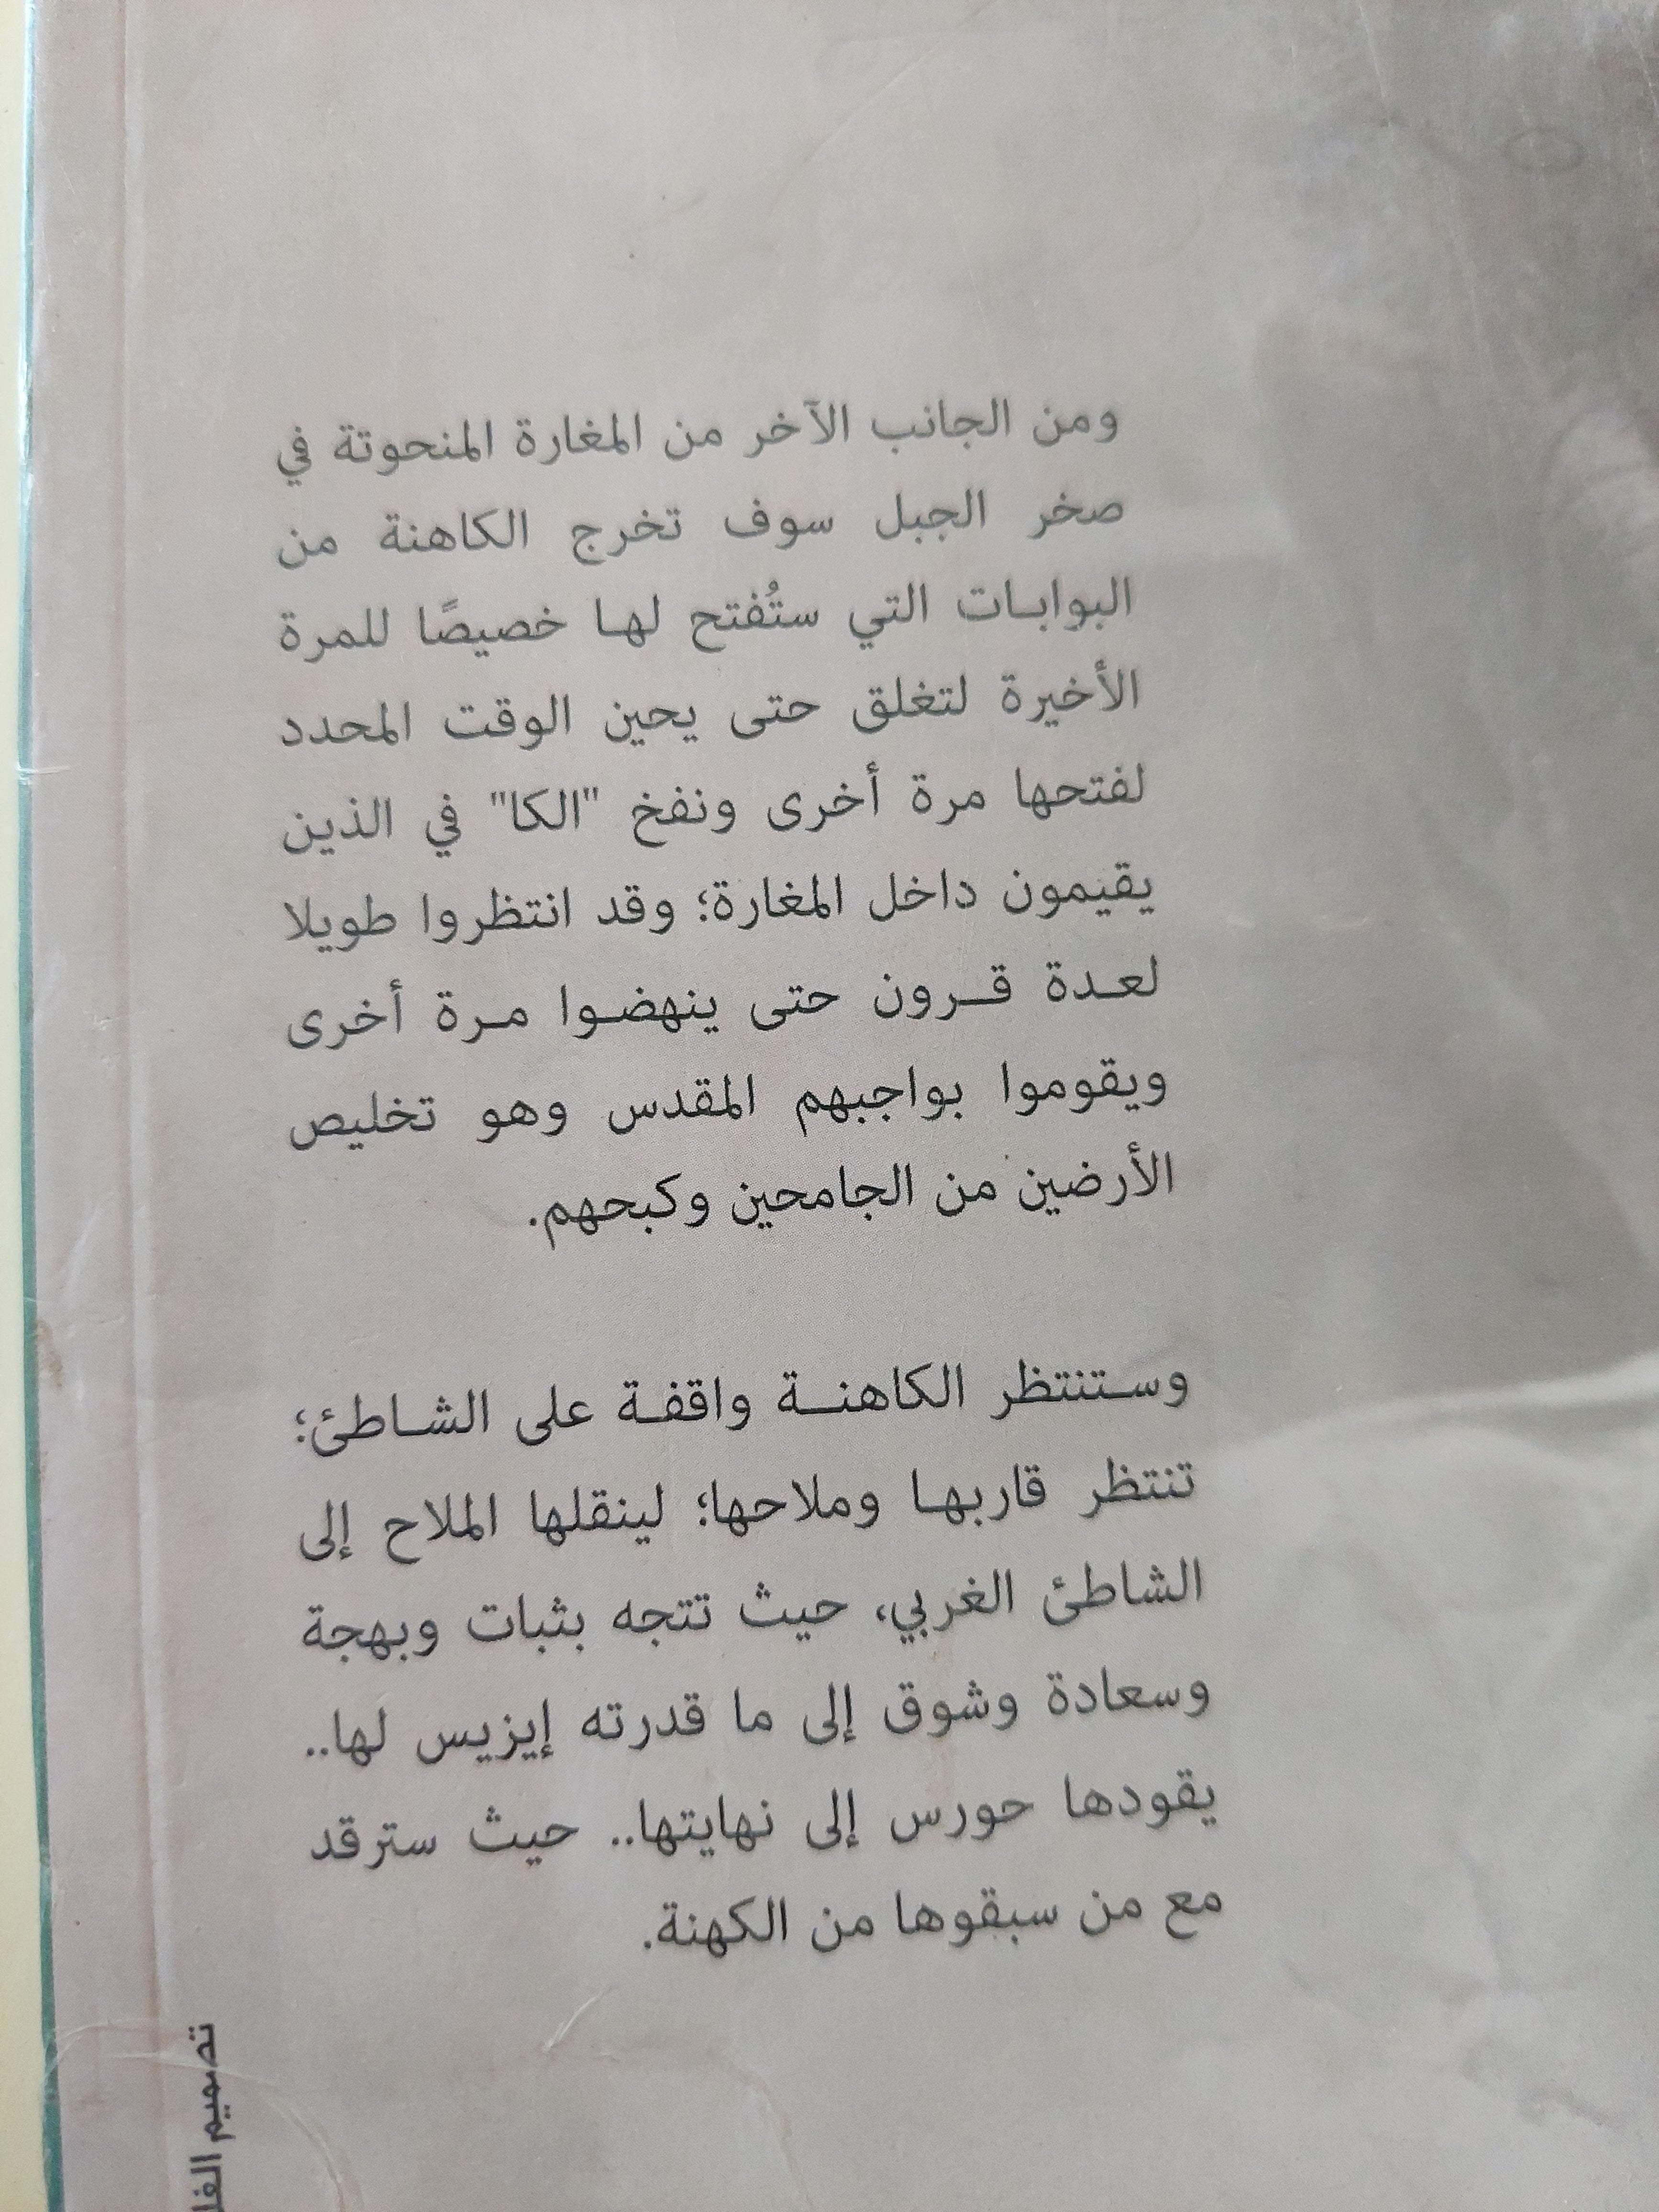 ومن الجانب الآخر من المغارة المنحوتة في
صخر الجبل سوف تخرج الكاهنة من
البوابات التي ستُفتح لها خصيصًا للمرة
الأخيرة لتغلق حتى يحين الوقت المحدد
لفتحها مرة أخرى ونفخ "الكا" في الذين
يقيمون داخل المغارة؛ وقد انتظروا طويلا
لعدة قرون حتى ينهضوا مرة أخرى
ويقوموا بواجبهم المقدس وهو تخليص
الأرضين من الجامحين وكبحهم.
وستنتظر الكاهنة واقفة على الشاطئ؛
تنتظر قاربها وملاحها؛ لينقلها الملاح إلى
الشاطئ الغربي، حيث تتجه بثبات وبهجة
وسعادة وشوق إلى ما قدرته إيزيس لها..
يقودها حورس إلى نهايتها.. حيث سترقد
مع من سبقوها من الكهنة.
تصميم